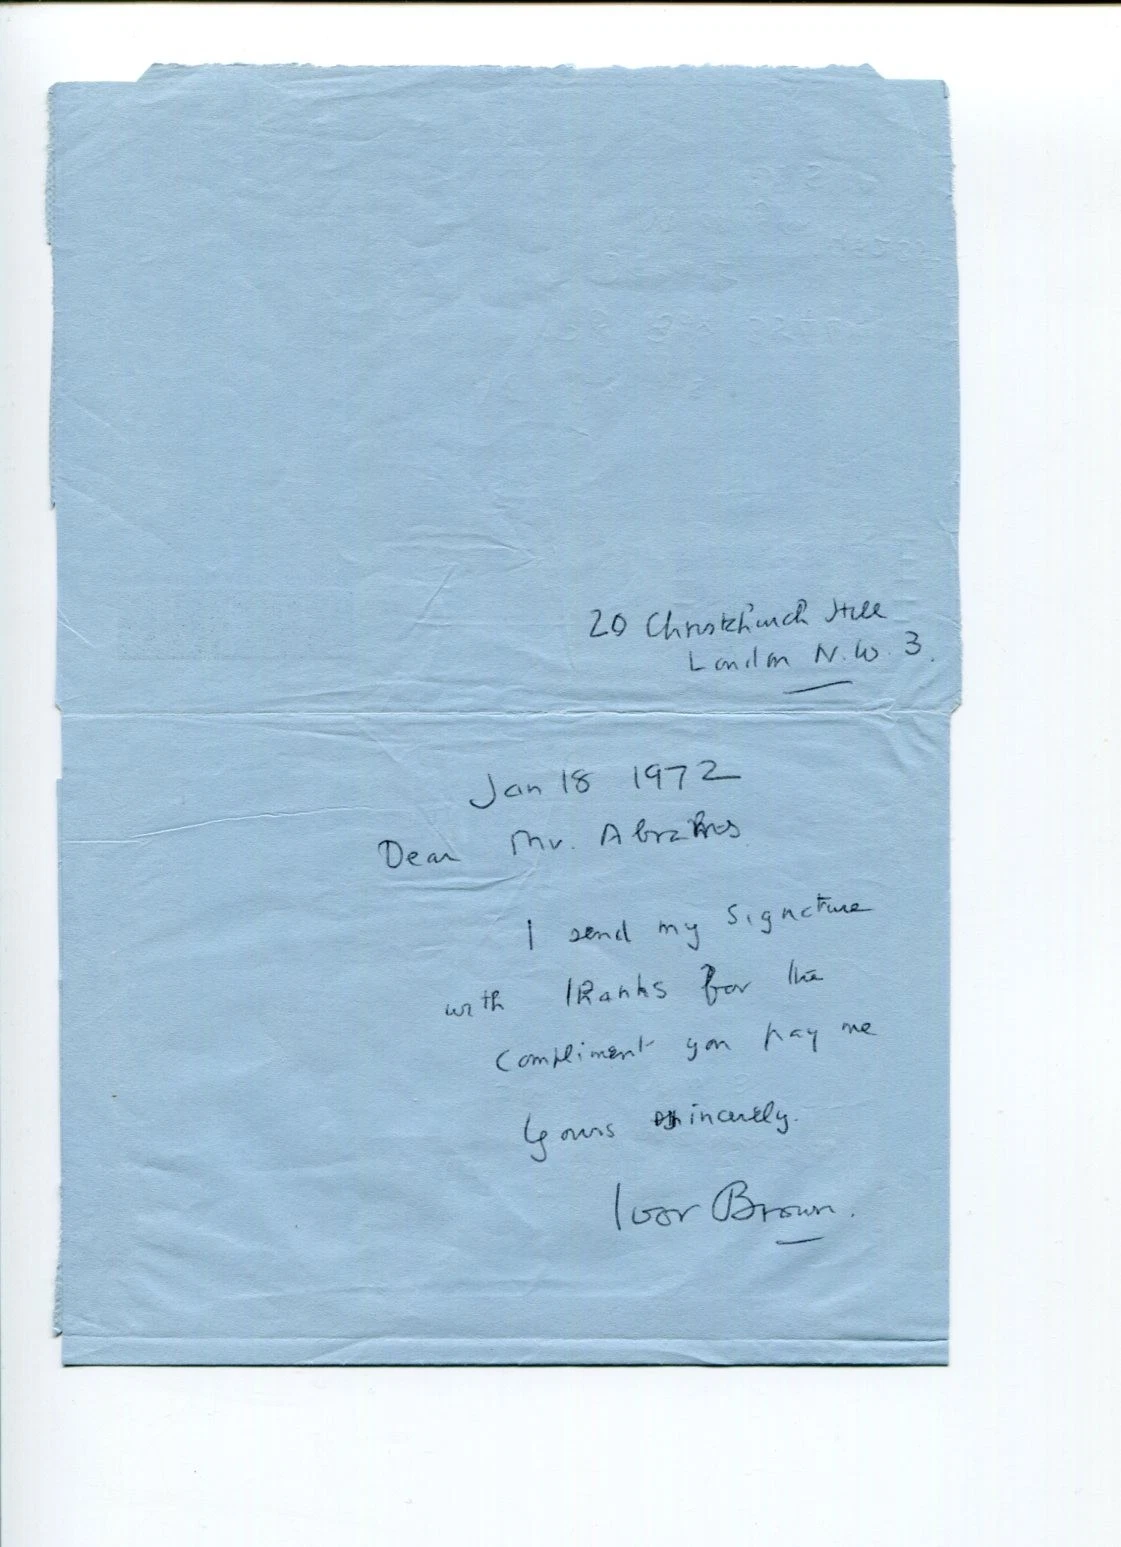 20 Christchurch Hill
London N.W. 3.
Jan 18 1972
Dear Mr. Abrahms
I send my signature
with thanks for the
compliment you pay me
Yours sincerely.
Ivor Brown.